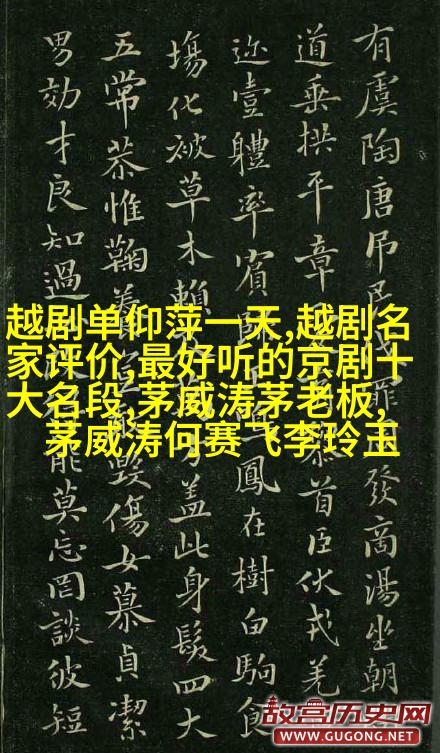 有虞陶唐吊民伐罪周發商湯坐朝
道垂拱平章首臣伏戎羌
迩壹體率賓歸鳴鳳在樹白駒食
塲化被草木賴蓋此身髮四大
五常恭惟鞠養毀傷女慕貞潔
男効才良知過能莫忘罔談彼短
越剧单仰萍一天,越剧名
家评价,最好听的京剧十
大名段,茅威涛茅老板,
茅威涛何赛飞李玲玉
故宫历史网
WWW.GUGONG.NET